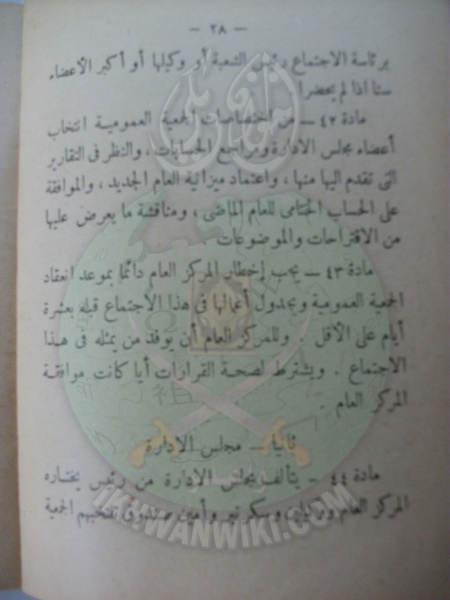 — ٢٨ —
برئاسة الاجتماع رئيس الشعبة أو وكيلها أو أكبر الأعضاء
سنا اذا لم يحضرا
مادة ٤٢ — من اختصاصات الجمعية العمومية انتخاب
أعضاء مجلس الادارة ومراجع الحسابات ، والنظر فى التقارير
التى تقدم اليها منها ، واعتماد ميزانية العام الجديد ، والموافقة
على الحساب الختامى للعام الماضى ، ومناقشة ما يعرض عليها
من الاقتراحات والموضوعات .
مادة ٤٣ — يجب إخطار المركز العام دائما بموعد انعقاد
الجمعية العمومية وبجدول أعمالها فى هذا الاجتماع قبله بعشرة
أيام على الأقل . وللمركز العام أن يوفد من يمثله فى هذا
الاجتماع . ويشترط لصحة القرارات أيا كانت موافقة
المركز العام .
ثانيا — مجلس الادارة
مادة ٤٤ — يتألف مجلس الادارة من رئيس يختاره
المركز العام ووكيلين وسكرتير وأمين صندوق تنتخبهم الجمعية
IKHWANWIKI.COM